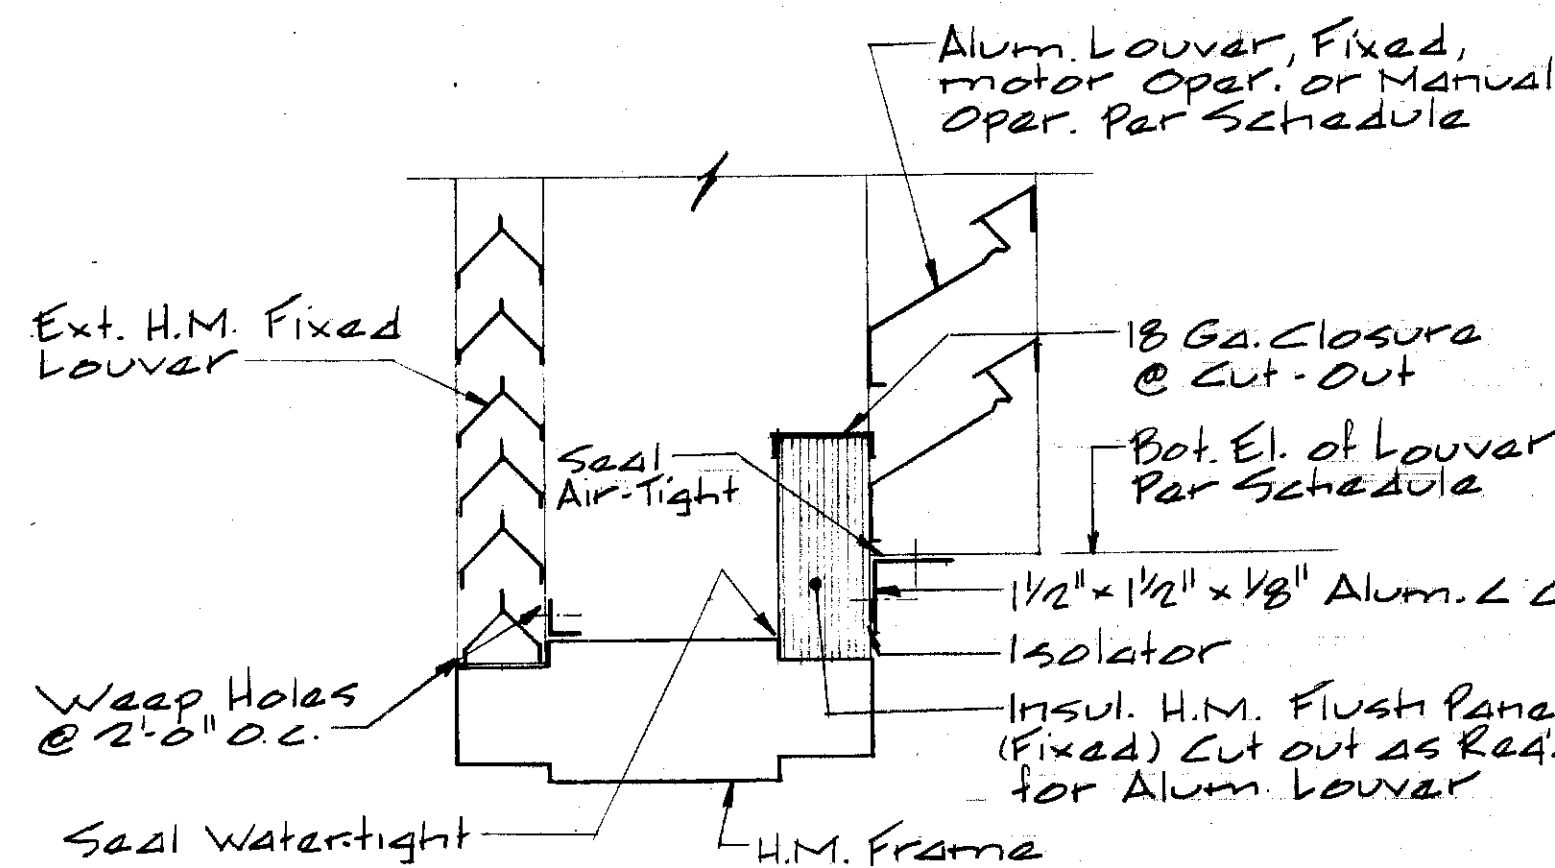 Alum. Louver, Fixed,
motor Oper. or Manual
Oper. Per Schedule
Ext. H.M. Fixed
Louver
18 Ga. Closure
@ Cut-Out
Seal
Air-Tight
Bot. El. of Louver
Per Schedule
1 1/2" x 1 1/2" x 1/8" Alum. L
Isolator
Weep Holes
@ 2'-0" O.C.
Insul. H.M. Flush Pane
(Fixed) Cut out as Req'.
for Alum. Louver
Seal Watertight
H.M. Frame